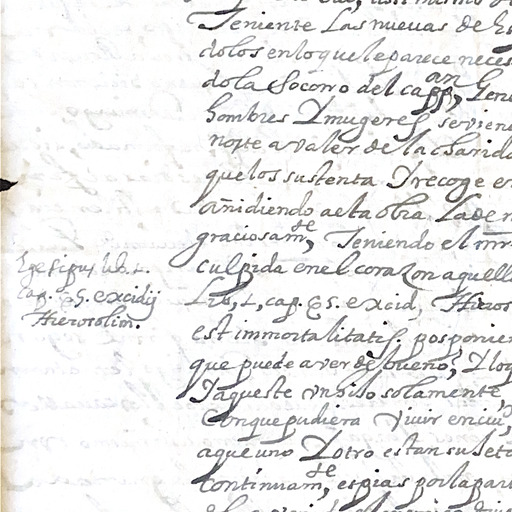 Teniente Las nuevas de
dolos enloque leparece neces
dola Socorro del capp,an Gene
hombres Y mugeres serviend
norte avaler de la charida
quelos sustenta Y recoge e
añidiendo aeta obra La de
graciosam,de Teniendo el
culpida enel corazon aquell
Lib, 1, cap. &5. excid, Hieros
est immortalitatis. posponien
que puede aver de bueno, Y loq
Y aqueste vnhilo solamente,
Conque pudiera vivir
aqueuno Y otro estan suseto
continuam,de espias por la par
Egesipus lib. 1.
cap. &5. excidij
Hierosolim.